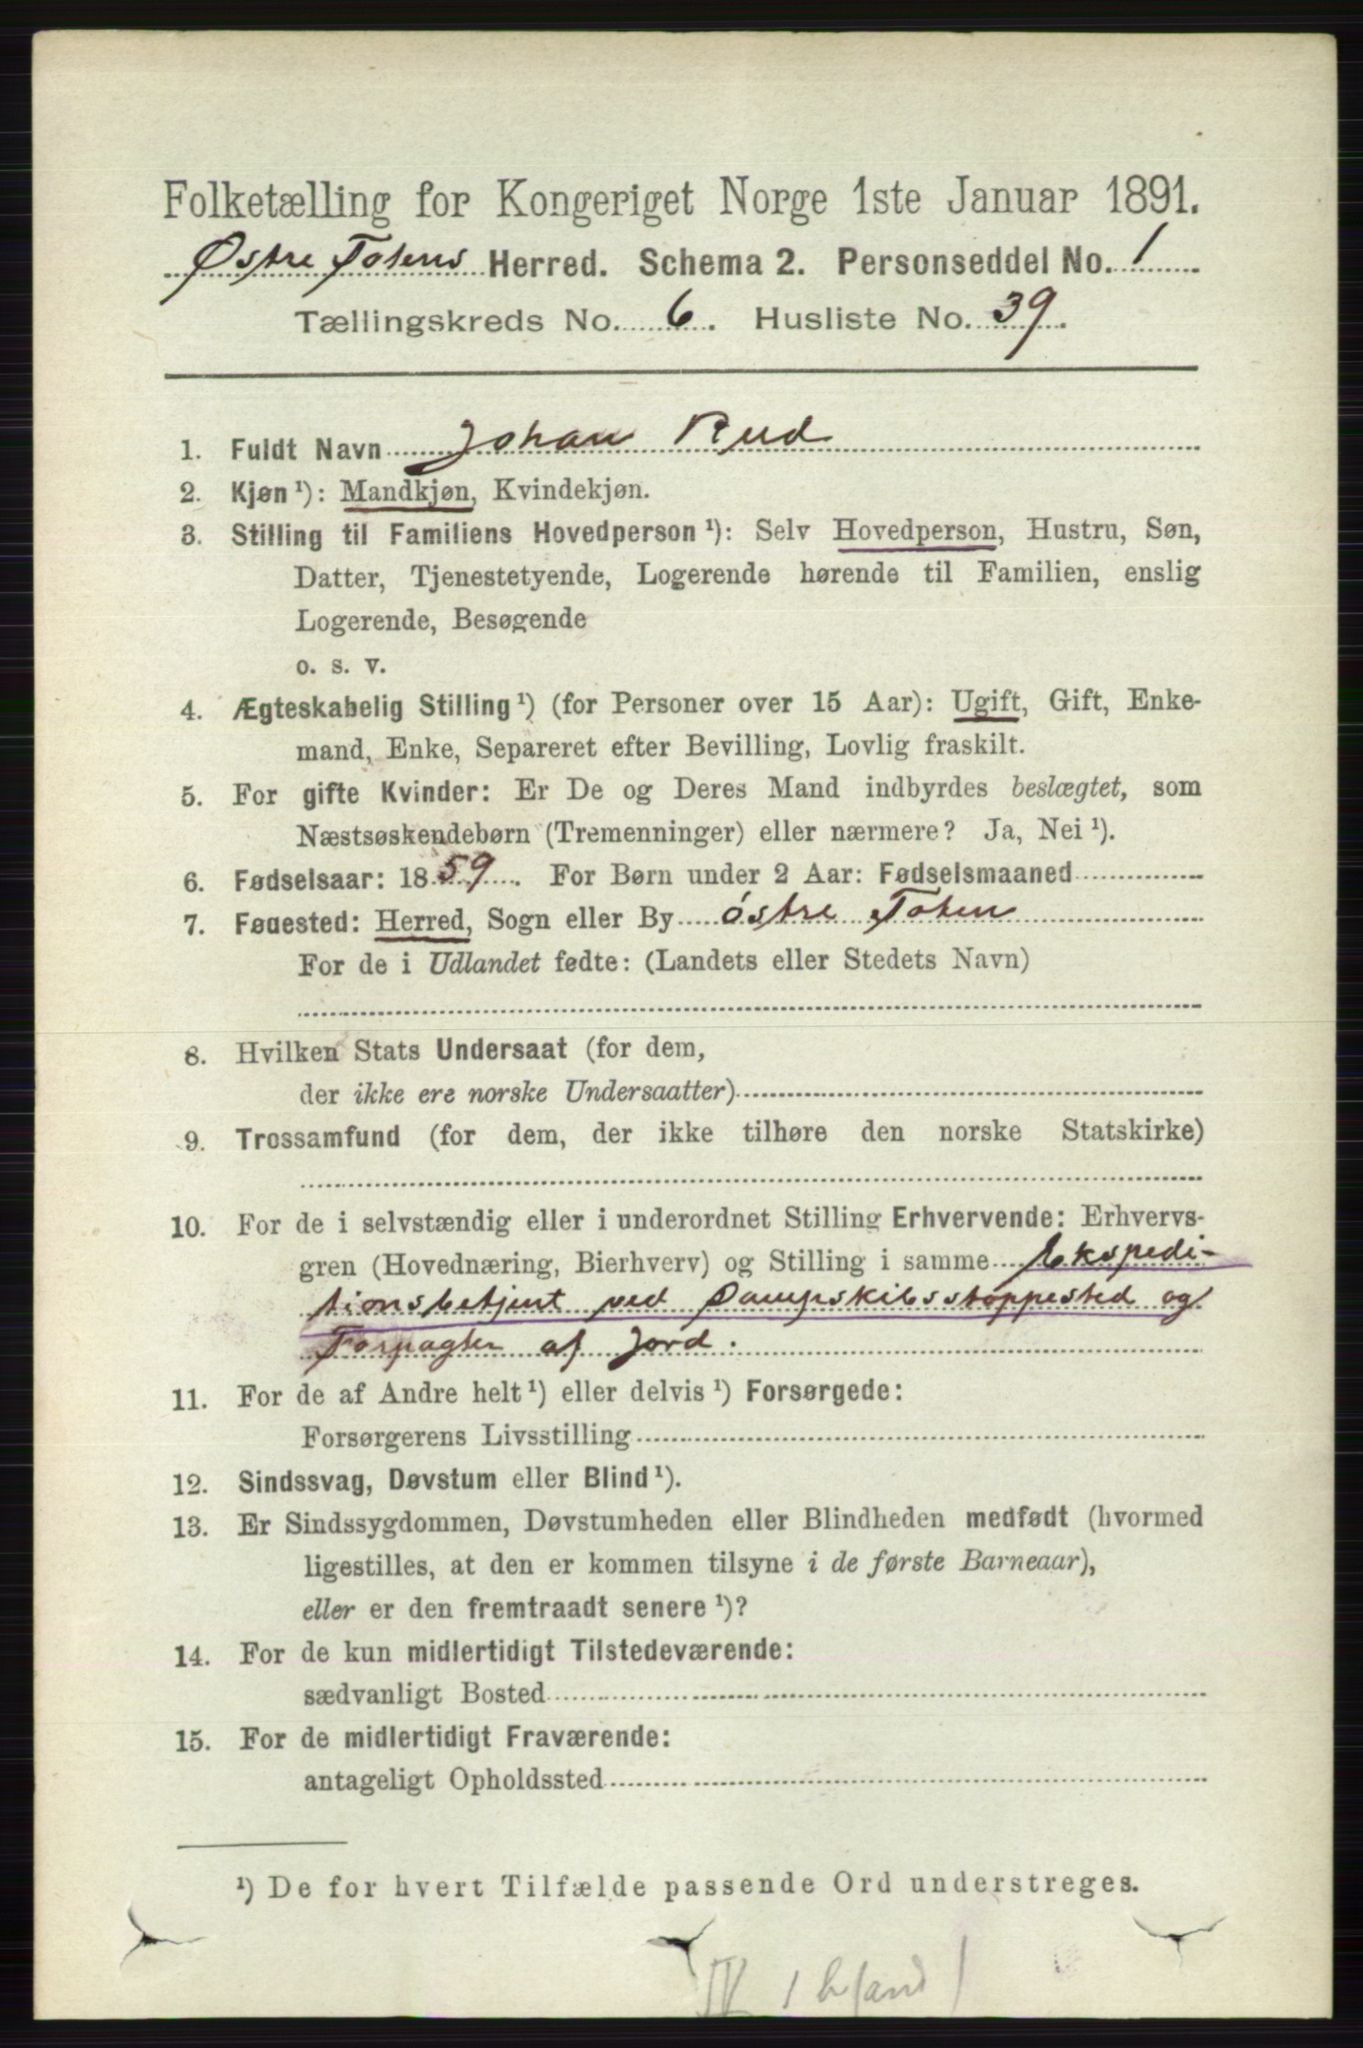 Folketælling for Kongeriget Norge 1ste Januar 1891.
Østre Totens Herred. Schema 2. Personseddel No. 1
Tællingskreds No. 6. Husliste No. 39.
1. Fuldt Navn Johan Rud
2. Kjøn ¹): Mandkjøn, Kvindekjøn.
3. Stilling til Familiens Hovedperson ¹): Selv Hovedperson, Hustru, Søn,
Datter, Tjenestetyende, Logerende hørende til Familien, enslig
Logerende, Besøgende
o. s. v.
4. Ægteskabelig Stilling ¹) (for Personer over 15 Aar): Ugift, Gift, Enke-
mand, Enke, Separeret efter Bevilling, Lovlig fraskilt.
5. For gifte Kvinder: Er De og Deres Mand indbyrdes beslægtet, som
Næstsøskendebørn (Tremenninger) eller nærmere? Ja, Nei ¹).
6. Fødselsaar: 1859. For Børn under 2 Aar: Fødselsmaaned
7. Føuested: Herred, Sogn eller By østre Toten
For de i Udlandet fødte: (Landets eller Stedets Navn)
8. Hvilken Stats Undersaat (for dem,
der ikke ere norske Undersaatter)
9. Trossamfund (for dem, der ikke tilhøre den norske Statskirke)
10. For de i selvstændig eller i underordnet Stilling Erhvervende: Erhvervs-
gren (Hovednæring, Bierhverv) og Stilling i samme Ekspedi-
tionsbetjent ved Dampskibsstoppested og
Forpagter af Jord.
11. For de af Andre helt ¹) eller delvis ¹) Forsørgede:
Forsørgerens Livsstilling
12. Sindssvag, Døvstum eller Blind ¹).
13. Er Sindssygdommen, Døvstumheden eller Blindheden medfødt (hvormed
ligestilles, at den er kommen tilsyne i de første Barneaar),
eller er den fremtraadt senere ¹)?
14. For de kun midlertidigt Tilstedeværende:
sædvanligt Bosted
15. For de midlertidigt Fraværende:
antageligt Opholdssted
¹) De for hvert Tilfælde passende Ord understreges.
IV 1